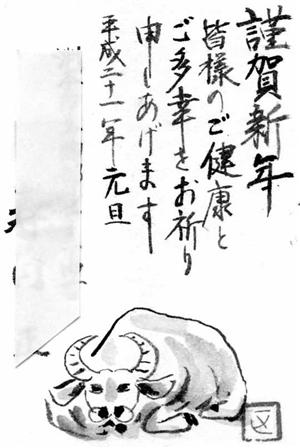 謹賀新年
皆様のご健康と
ご多幸をお祈り
申しあげます
平成二十一年元旦